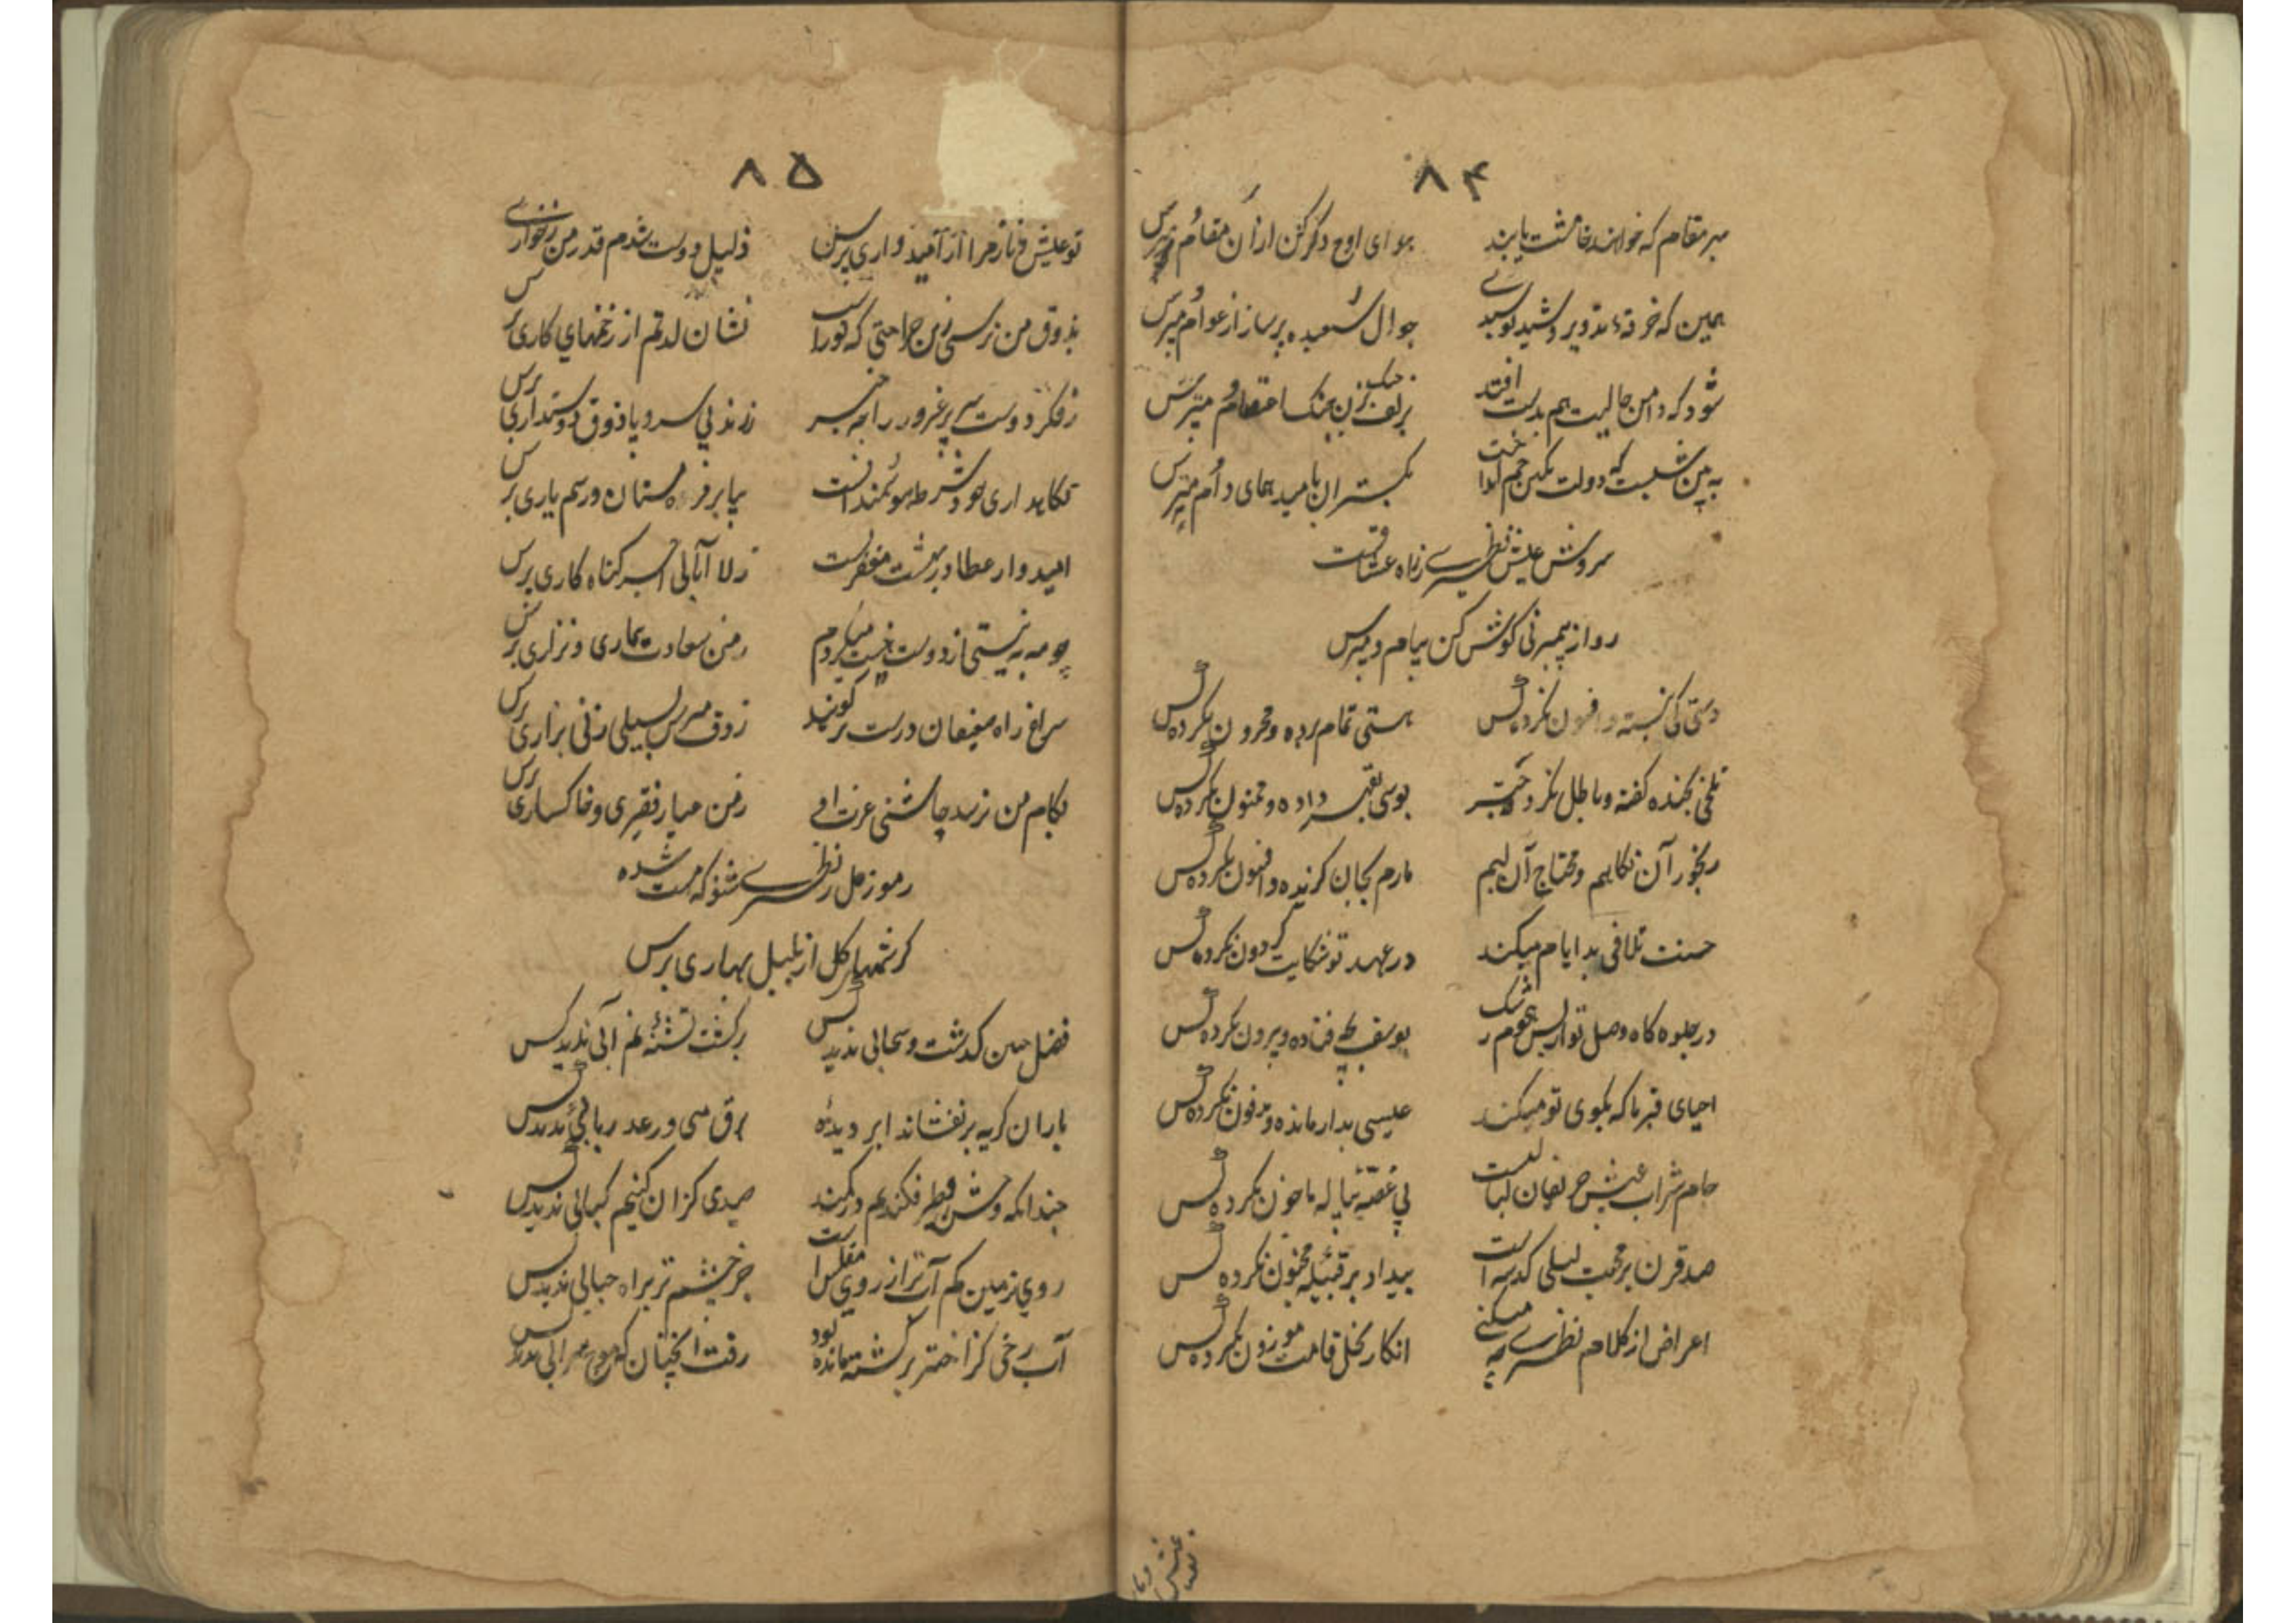 ۸۴
بهر مقام که خواهند غائبت یابند
هوای اوج دگر کن ازان مقام مپرس
همین که خرقهٔ تزویر و شید پوسیدی
جوال شعبده پرساز از عوام مپرس
شود که دامن حالیت هم بدست افتد
بزلف چنگ بزن ز اعتصام مپرس
به بین نشست که دولت نگین جم آنداخت
بگستران بامید همای دام مپرس
سروش عیش نظیری ز راه عشاقست
رو از پیمبر نی گوش کن پیام و مپرس
دستی کی نبسته و افسون نکرده کس
هستی تمام برده و محزون نکرده کس
تلخی بخنده گفته و باطل نکرد و حق
بوسی بقهر داده و ممنون نکرده کس
رنجور آن نگاهیم و محتاج آن لبیم
مارم بجان گزیده و افسون نکرده کس
حسنت تلافی بد ایام میکند
در عهد تو شکایت گردون نکرده کس
در جلوه گاه وصل تو از بس هجوم رشک
یوسف بچه فتاده و بیرون نکرده کس
احیای قبرها که بکوی تو میکند
عیسی بدار مانده و مدفون نکرده کس
جام شراب عیش حریفان لبالبست
بی غصه پیاله ما خون نکرده کس
صد قرن بر محبت لیلی گذشته است
بیداد بر قبیله مجنون نکرده کس
اعراض از کلام نظیری چه میکنی
انکار نخل قامت موزون نکرده کس
۸۵
تو عیش و ناز مرا از امیدواری پرس
ذلیل دوست شدم قدر من ز خواری پرس
بذوق من نرسی زین جراحتی که تراست
نشان لذتم از زخمهای کاری پرس
ز فکر دوست سر پرغرور را چه خبر
ز رند بی سر و پا ذوق دوستداری پرس
نگاهداری خود شرط هوشمندانست
بیا بر فره مستان و رسم یاری پرس
امیدوار عطا در بهشت مغفرتست
ز لا ابالی اسیر گناه کاری پرس
چو مه به نیستی از دوست نیست میگردم
ز من سعادت بیماری و نزاری پرس
سراغ راه مغیلان درست برگویند
ز ذوق مپرس بسیلی زنی بزاری پرس
بکام من نرسد چاشنی عزت او
ز من عیار فقیری و خاکساری پرس
رموز مل ز نظیری شنو که مست شده
کرشمهای گل از بلبل بهاری پرس
فصل چمن گذشت و سحابی ندید کس
بر کشت تشنه نم آبی ندید کس
باران گریه بر نفشاند ابر دیدهٔ
برق می و رعد ربابی ندید کس
چندانکه وحش و طیر فکندیم در کمند
صیدی کزان کنیم کبابی ندید کس
روی زمین کم آب تر از روی مفلس است
جز چشم تر براه حبابی ندید کس
آب رخی کز اختر برگشته مانده بود
رفت آنچنان که موج سرابی ندید کس